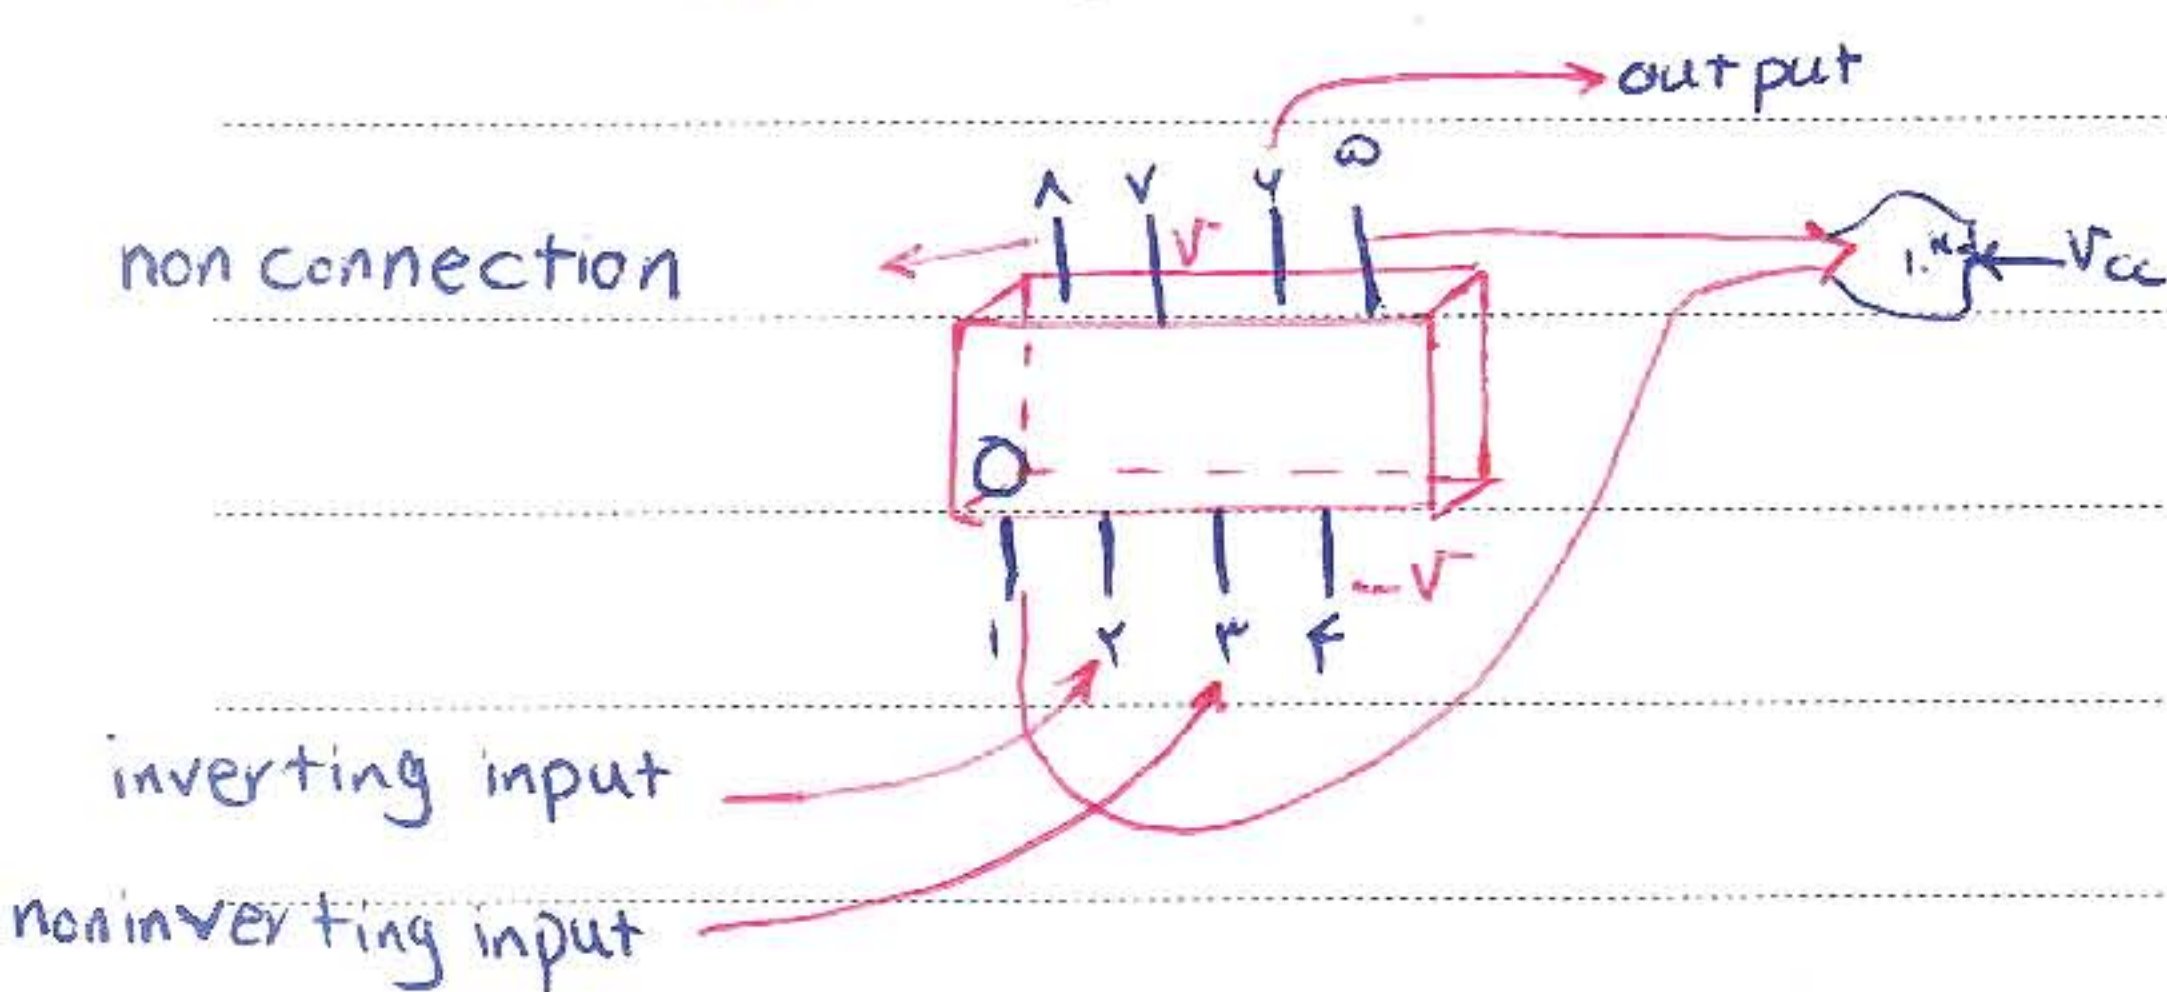 output
۸ ۷ ۶ ۵
non connection
V
Vcc
-V
۱ ۲ ۳ ۴
inverting input
noninverting input